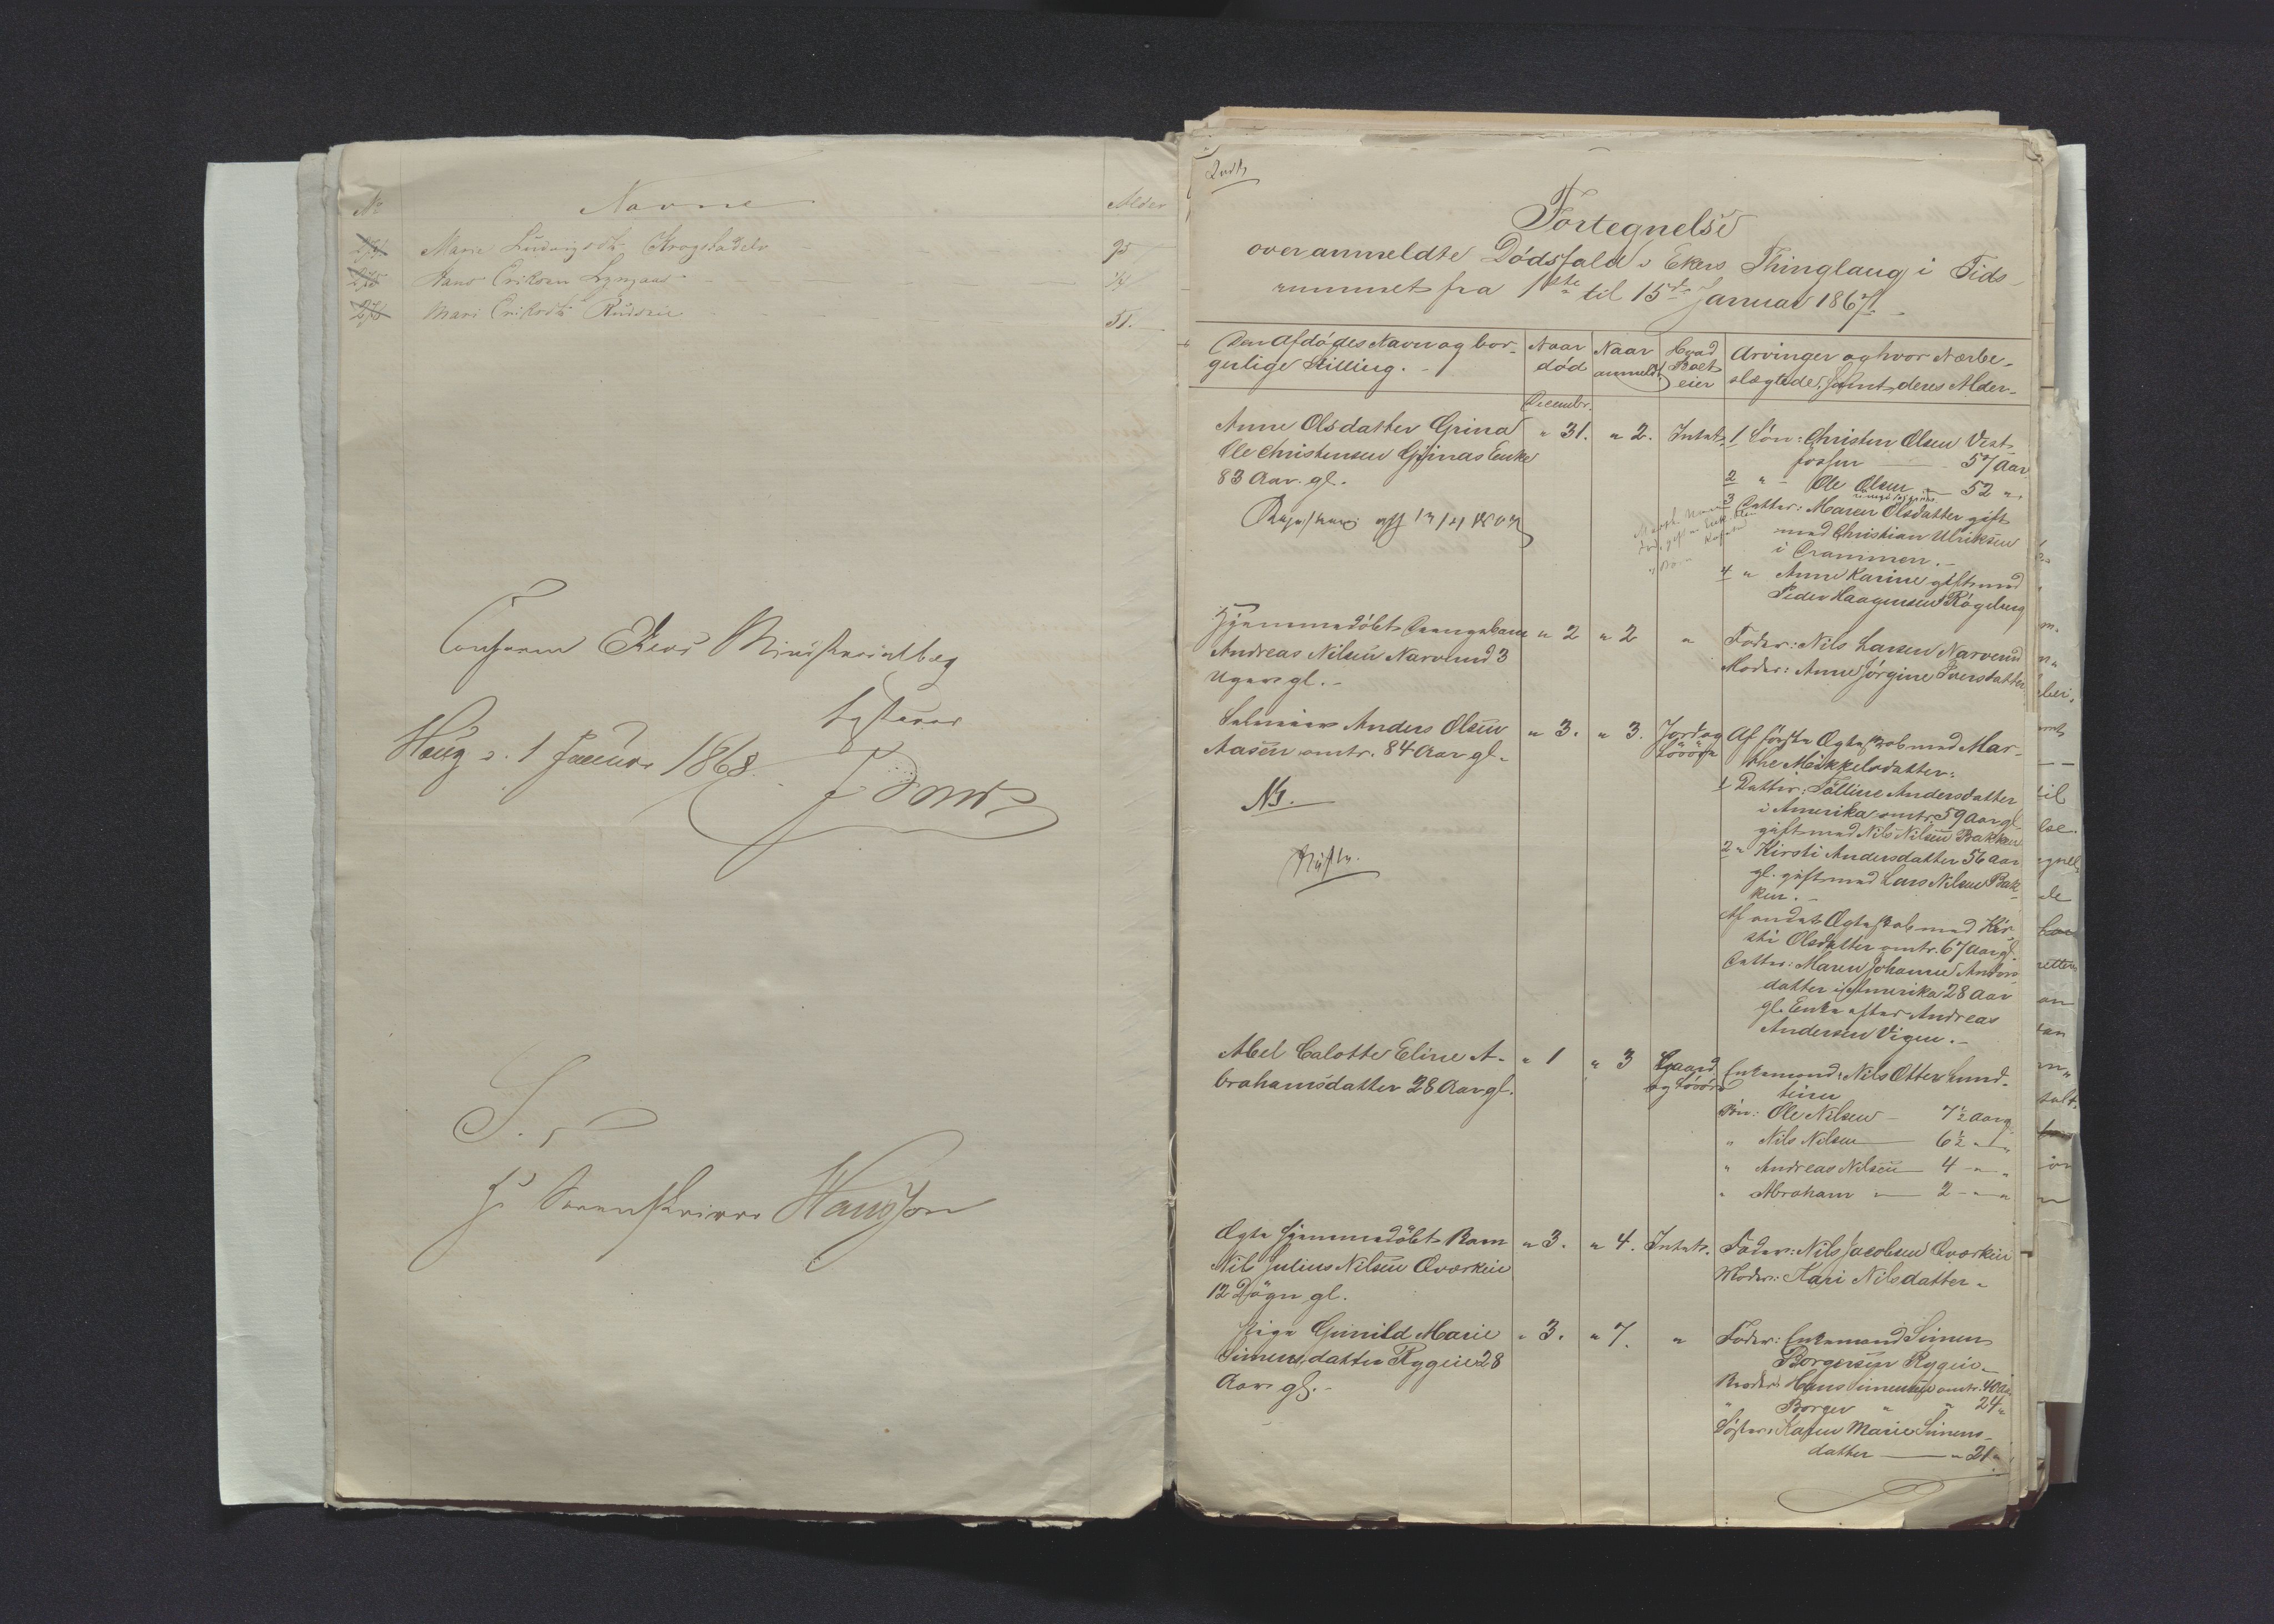 No Navne Alder
274 Marie Ludvigsdtr Krogstadelv 75
275 Hans Eriksen
276 Mari Eriksdtr 51.
Conform Ekers Ministerialbog
Haug d. 1 Januar 1868.
S. T.
Hr Sorenskriver Hansson
Fortegnelse
over anmeldte Dødsfald i Ekers Thinglaug i Tids-
rummet fra 1ste til 15de Januar 1867.
Den Afdødes Navn og bor-
gerlige Stilling.
Naar
død
Naar
anmeldt
Hvad
Boet
eier
Arvinger og hvor Nærbe-
slægtede, samt deres Alder.
Decembr.
Anne Olsdatter Grina " 31. " 2. Intet. 1 Søn: Christen Olsen Vest-
Ole Christensen Grinas Enke fossen 57 Aar
83 Aar gl. 2 " Ole Olsen 52 "
3 Datter: Maren Olsdatter gift
med Christian Ulriksen
i Drammen.
4 " Anne Karine gift med
Peder Haagensen Røgeberg
Hjemmedøbt Drengebarn " 2 " 2 " Fader: Nils Larsen Narverud
Andreas Nilsen Narverud 3 Moder: Anne Jørgine Iversdatter
Uger gl.
Anders Olsen " 3. " 3. Jord og Af første Ægteskab med Mar-
Aasen omtr. 84 Aar gl. Løsøre the Mikkelsdatter:
1 Datter: Andersdatter
NB. i Amerika omtr. 59 Aar gl.
gift med Nils Nilsen Bakken
2 " Kirsti Andersdatter 56 Aar
gl. gift med Lars Nilsen Bak-
ken.
Af andet Ægteskab med Kir-
sti Olsdatter omtr. 67 Aar gl.
Datter: Maren Johanne Anders-
datter i Amerika 28 Aar
gl. Enke efter Andreas
Andersen Vigen.
Abel Calotte Eline A- " 1 " 3 Gaard Enkemand: Nils Otter Lund-
brahamsdatter 28 Aar gl. og Løsøre teien
Søn: Ole Nilsen 7½ Aar g
" Nils Nilsen 6½ "
" Andreas Nilsen 4 "
" Abraham " 2 "
Ægte hjemmedøbt Barn " 3. " 4. Intet. Fader: Nils Jacobsen Qværkeie
Nils Julius Nilsen Qværkeie Moder: Kari Nilsdatter
12 Døgn gl.
Pige Gunild Marie " 3. " 7. " Fader: Enkemand Simen
Simensdatter Rygeie 28 Borgersen Rygeie
Aar gl. Broder: Hans Simensen omtr. 40 Aar
" Borger " " 24 "
Søster: Karen Marie Simens-
datter " 21 "